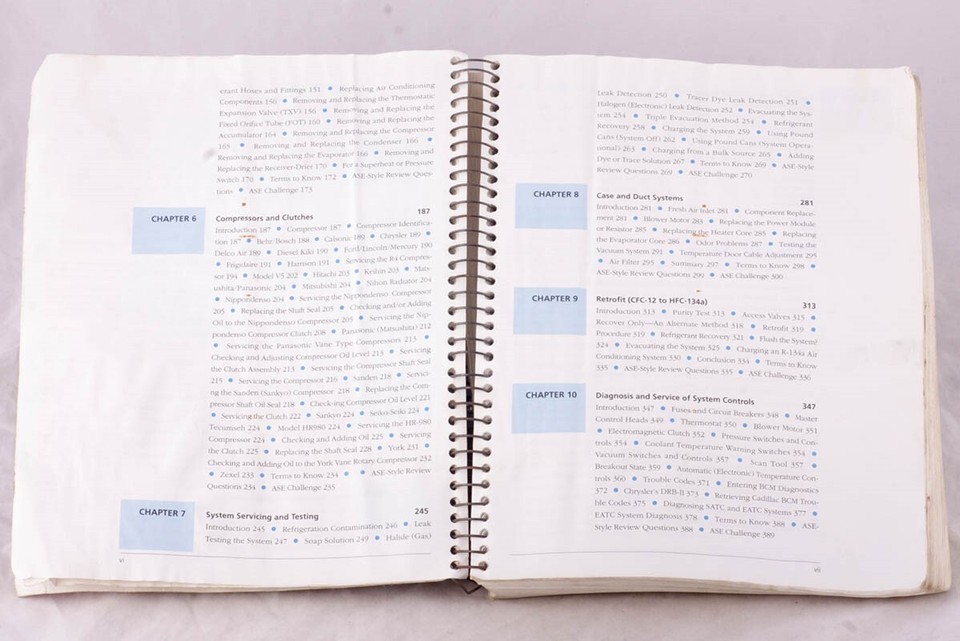 erant Hoses and Fittings 151 • Replacing Air Conditioning
Components 156 • Removing and Replacing the Thermostatic
Expansion Valve (TXV) 156 • Removing and Replacing the
Fixed Orifice Tube (FOT) 160 • Removing and Replacing the
Accumulator 164 • Removing and Replacing the Compressor
165 • Removing and Replacing the Condenser 166 •
Removing and Replacing the Evaporator 166 • Removing and
Replacing the Receiver-Drier 170 • Superheat or Pressure
Switch 170 • Terms to Know 172 • ASE-Style Review Ques-
tions • ASE Challenge 173
CHAPTER 6
Compressors and Clutches 187
Introduction 187 • Compressor 187 • Compressor Identifica-
tion 187 • Behr/Bosch 188 • Calsonic 189 • Chrysler 189 •
Delco Air 189 • Diesel Kiki 190 • Ford/Lincoln/Mercury 190
• Frigidaire 191 • Harrison 191 • Servicing the R4 Compres-
sor 194 • Model V5 202 • Hitachi 203 • Keihin 203 • Mats-
ushita/Panasonic 204 • Mitsubishi 204 • Nihon Radiator 204
• Nippondenso 204 • Servicing the Nippondenso Compressor
205 • Replacing the Shaft Seal 205 • Checking and/or Adding
Oil to the Nippondenso Compressor 205 • Servicing the Nip-
pondenso Compressor Clutch 208 • Panasonic (Matsushita) 212
• Servicing the Panasonic Vane Type Compressors 213 •
Checking and Adjusting Compressor Oil Level 213 • Servicing
the Clutch Assembly 213 • Servicing the Compressor Shaft Seal
215 • Servicing the Compressor 216 • Sanden 218 • Servici-
ng the Sanden (Sankyo) Compressor 218 • Replacing the Com-
pressor Shaft Oil Seal 218 • Check-ing Compressor Oil Level 221
• Servicing the Clutch 222 • Sankyo 224 • Seiko-Seiki 224 •
Tecumseh 224 • Model HR980 224 • Servicing the HR-980
Compressor 224 • Checking and Adding Oil 225 • Servicing
the Clutch 225 • Replacing the Shaft Seal 228 • York 231 •
Checking and Adding Oil to the York Vane Rotary Compressor 232
• Zexel 233 • Terms to Know 234 • • ASE-Style Review
Questions 234 • ASE Challenge 235
CHAPTER 7
System Servicing and Testing 245
Introduction 245 • Refrigeration Contamination 246 • Leak
Testing the System 247 • Soap Solution 249 • Halide (Gas)
vi
Leak Detection 250 • Tracer Dye Leak Detection 251 •
Halogen (Electronic) Leak Detection 252 • Evacuating the Sys-
tem 254 • Triple Evacuation Method 254 • Refrigerant
Recovery 258 • Charging the System 259 • Using Pound
Cans (System Off) 262 • Using Pound Cans (System Opera-
tional) 263 • Charging from a Bulk Source 265 • Adding
Dye or Trace Solution 267 • Terms to Know 269 • ASE-Style
Review Questions 269 • ASE Challenge 270
CHAPTER 8
Case and Duct Systems 281
Introduction 281 • Fresh Air Inlet 281 • Component Replace-
ment 281 • Blower Motor 283 • Replacing the Power Module
or Resistor 285 • Replacing the Heater Core 285 • Replacing
the Evaporator Core 286 • Odor Problems 287 • Testing the
Vacuum System 291 • Temperature Door Cable Adjustment 295
• Air Filter 295 • Summary 297 • Terms to Know 298 •
ASE-Style Review Questions 299 • ASE Challenge 300
CHAPTER 9
Retrofit (CFC-12 to HFC-134a) 313
Introduction 313 • Purity Test 313 • Access Valves 315 •
Recover Only—An Alternate Method 318 • Retrofit 319 •
Procedure 319 • Refrigerant Recovery 321 • Flush the System?
324 • Evacuating the System 325 • Charging an R-134a Air
Conditioning System 330 • Conclusion 334 • Terms to Know
335 • ASE-Style Review Questions 335 • ASE Challenge 336
CHAPTER 10
Diagnosis and Service of System Controls 347
Introduction 347 • Fuses and Circuit Breakers 348 • Master
Control Heads 349 • Thermostat 350 • Blower Motor 351
• Electromagnetic Clutch 352 • Pressure Switches and Con-
trols 354 • Coolant Temperature Warning Switches 354 •
Vacuum Switches and Controls 357 • Scan Tool 357 •
Breakout State 359 • Automatic (Electronic) Temperature Con-
trols 360 • Trouble Codes 371 • Entering BCM Diagnostics
372 • Chrysler's DRB-II 373 • Retrieving Cadillac BCM Trou-
ble Codes 375 • Diagnosing SATC and EATC Systems 377 •
EATC System Diagnosis 378 • Terms to Know 388 • ASE-
Style Review Questions 388 • ASE Challenge 389
vii